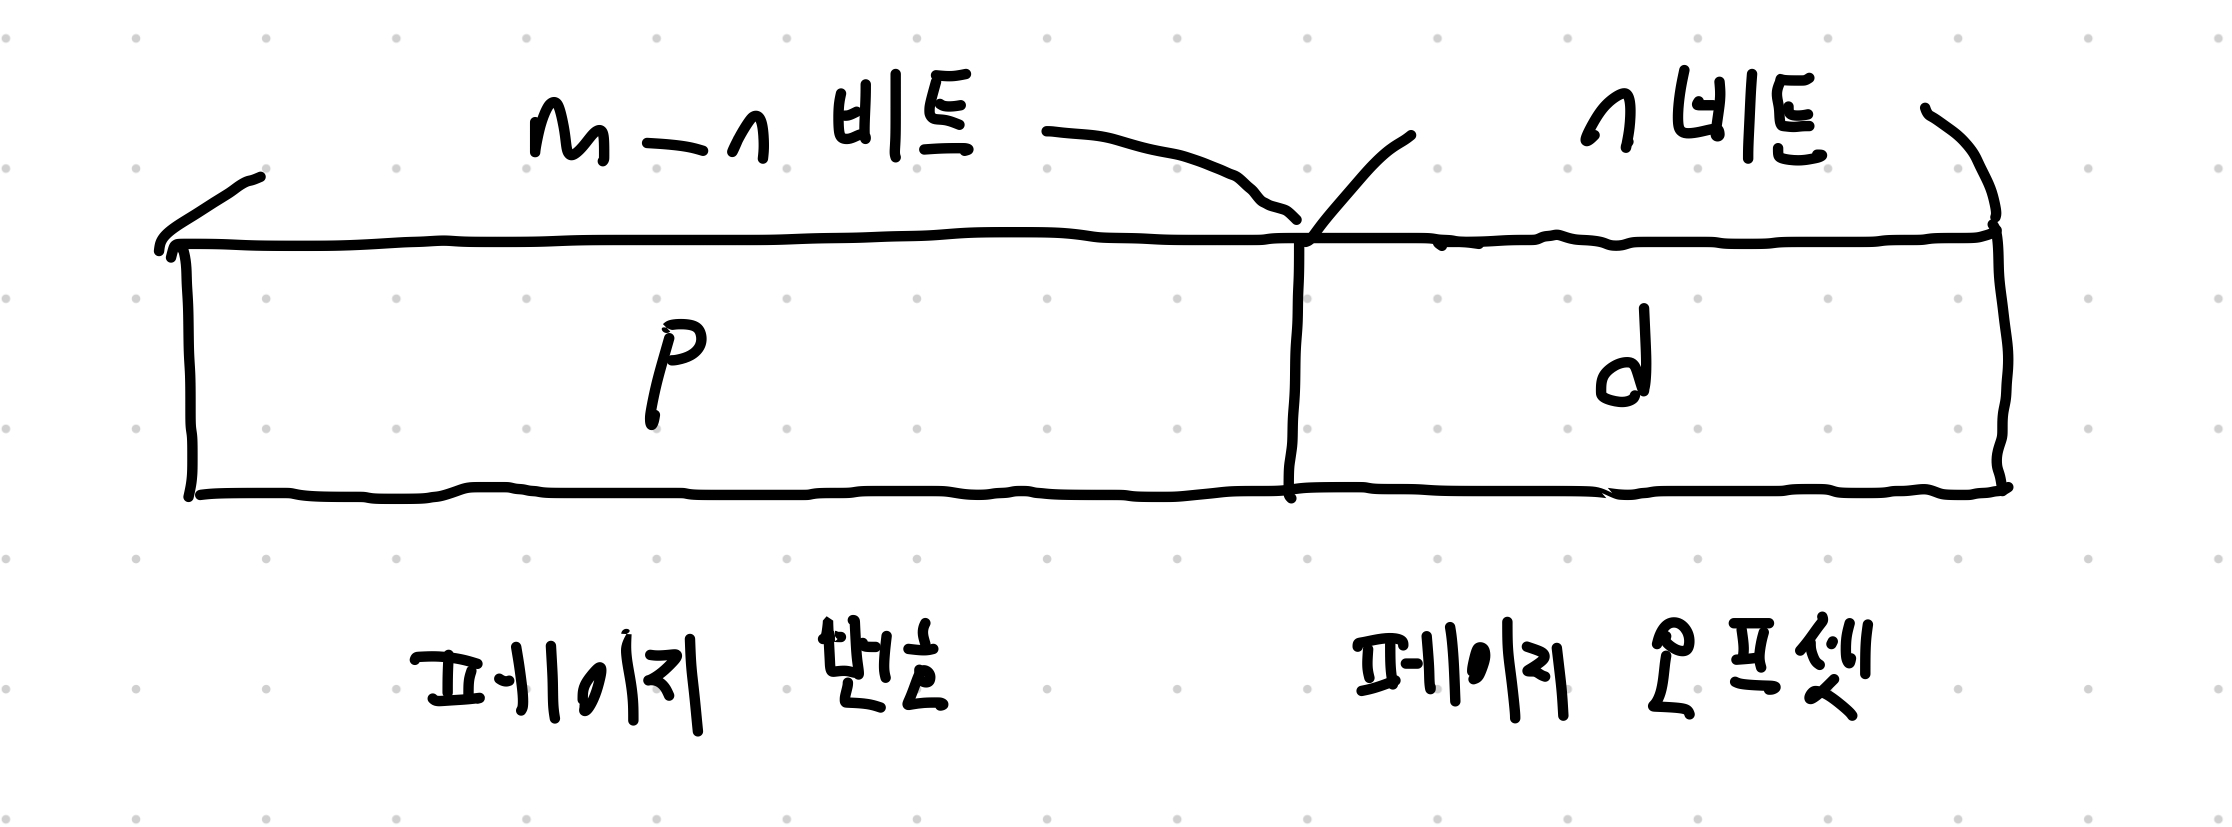 m-n 비트 n 비트
p d
페이지 번호 페이지 오프셋